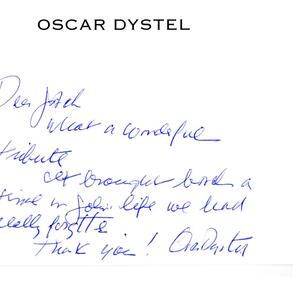 OSCAR DYSTEL
Dear
What a wonderful
tribute
It brought back a
time in John life we had
really forgotten
Thank you! Oscar Dystel